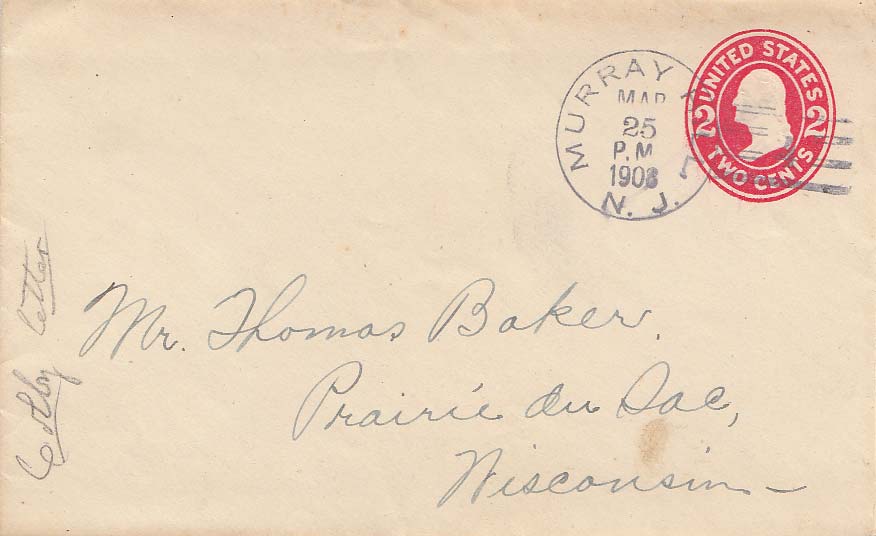 UNITED STATES
2 2
TWO CENTS
MURRAY
MAR
25
P.M
1908
N. J.
Mr. Thomas Baker.
Prairie du Sac,
Wisconsin
Colby letter